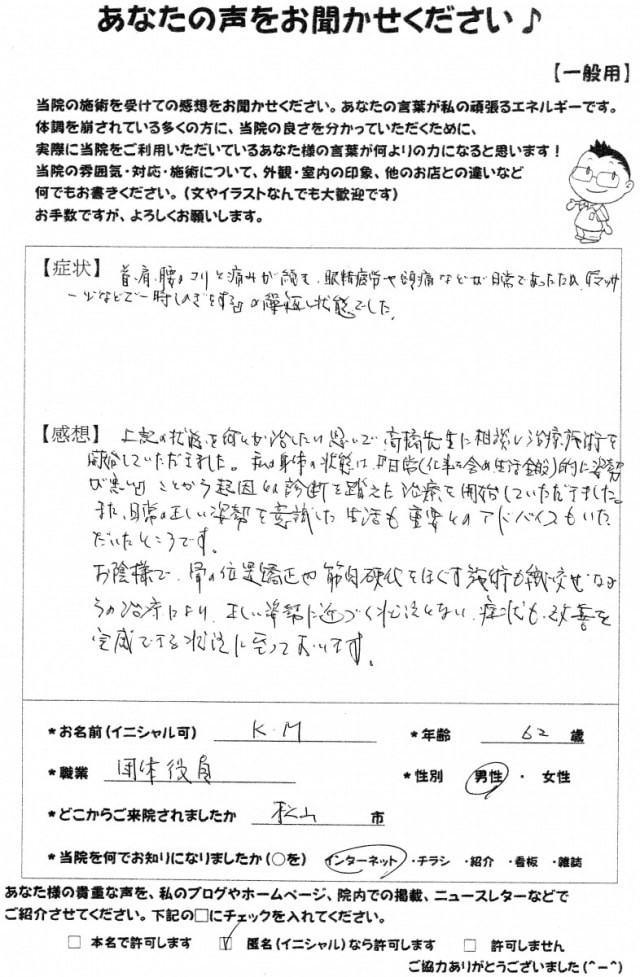 あなたの声をお聞かせください♪
【一般用】
当院の施術を受けての感想をお聞かせください。あなたの言葉が私の頑張るエネルギーです。
体調を崩されている多くの方に、当院の良さを分かっていただくために、
実際に当院をご利用いただいているあなた様の言葉が何よりの力になると思います！
当院の雰囲気・対応・施術について、外観・室内の印象、他のお店との違いなど
何でもお書きください。（文やイラストなんでも大歓迎です）
お手数ですが、よろしくお願いします。
【症状】 首、肩、腰のコリと痛みが 、眼精疲労や頭痛などが日常であったため、『マッサ
ージなどで一時しのぎをする』の繰返し状態でした。
【感想】 上記の状態を何とか治したい思いで高橋先生に相談し治療施術を
開始していただきました。私の身体の状態は、『日常(仕事も含め生活全般)的に姿勢
が悪い』ことから起因との診断を踏えた治療を開始していただきました。
また、日常の正しい姿勢を意識した生活も重要とのアドバイスもいた
だいたところです。
お陰様で、骨の位置矯正や筋肉硬化をほぐす施術も織り交ぜなが
らの治療により、正しい姿勢に近づく状況となり、症状も改善を
完成できる状況に至っております。
＊お名前（イニシャル可） K・M ＊年齢 62 歳
＊職業 団体役員 ＊性別 男性 ・ 女性
＊どこからご来院されましたか 松山 市
＊当院を何でお知りになりましたか（○を） インターネット ・チラシ ・紹介 ・看板 ・雑誌
あなた様の貴重な声を、私のブログやホームページ、院内での掲載、ニュースレターなどで
ご紹介させてください。下記の□にチェックを入れてください。
□ 本名で許可します ☑ 匿名（イニシャル）なら許可します □ 許可しません
ご協力ありがとうございました（^－^）